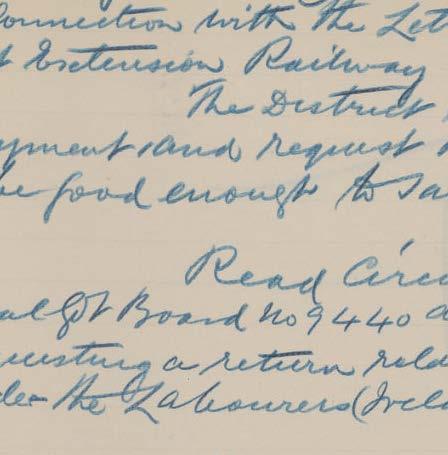 Connection with the Let
t Extension Railway
The District
yment and request
be good enough to sa
Read Circu
al Gvt Board No 9440 a
uesting a return rela
der the Labourers (Irela